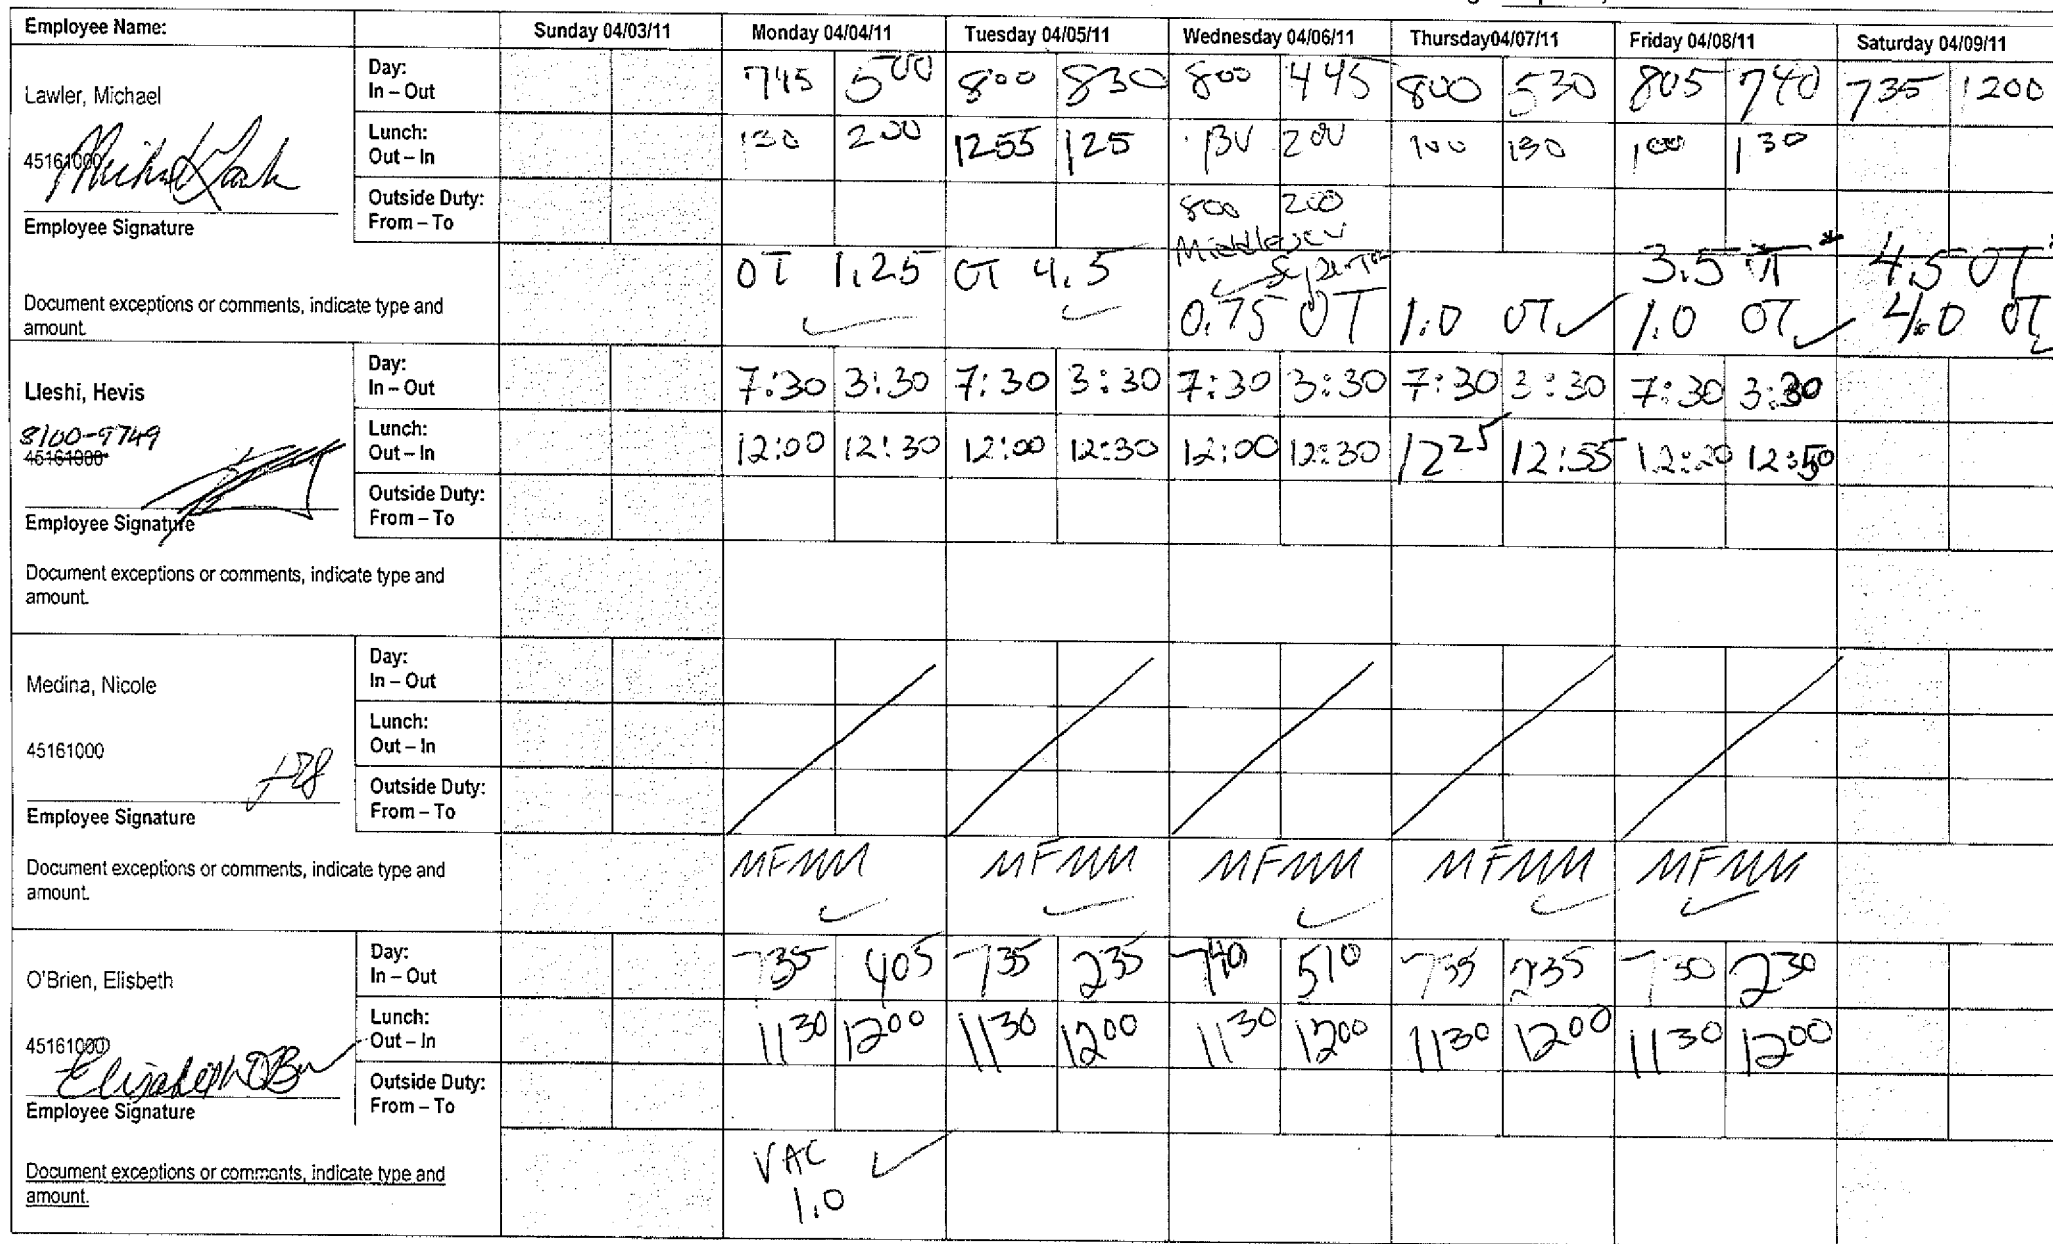 Employee Name: Sunday 04/03/11 Monday 04/04/11 Tuesday 04/05/11 Wednesday 04/06/11 Thursday04/07/11 Friday 04/08/11 Saturday 04/09/11
Lawler, Michael
45161000
Employee Signature
Day: In – Out 745 500 800 830 800 445 800 530 805 740 735 1200
Lunch: Out – In 130 200 1255 125 130 200 100 130 100 130
Outside Duty: From – To 800 200
Document exceptions or comments, indicate type and amount.
OT 1.25 OT 4.5 0.75 OT 1.0 OT 3.5 OT * 4.5 OT
1.0 OT 4.0 OT
Lleshi, Hevis
8100-9749
45161000
Employee Signature
Day: In – Out 7:30 3:30 7:30 3:30 7:30 3:30 7:30 3:30 7:30 3:30
Lunch: Out – In 12:00 12:30 12:00 12:30 12:00 12:30 1225 12:55 12:20 12:50
Outside Duty: From – To
Document exceptions or comments, indicate type and amount.
Medina, Nicole
45161000
Employee Signature
Day: In – Out
Lunch: Out – In
Outside Duty: From – To
Document exceptions or comments, indicate type and amount.
MFMM MFMM MFMM MFMM MFMM
O'Brien, Elisbeth
45161000
Elisabeth O'Brien
Employee Signature
Day: In – Out 735 405 735 235 740 510 735 235 730 230
Lunch: Out – In 1130 1200 1130 1200 1130 1200 1130 1200 1130 1200
Outside Duty: From – To
Document exceptions or comments, indicate type and amount.
VAC
1.0